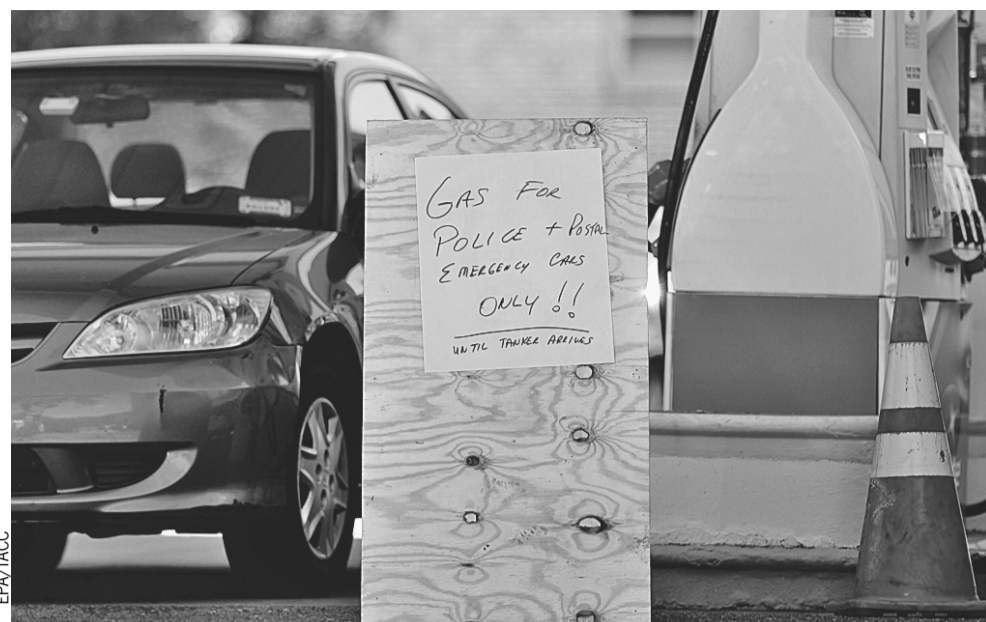 GAS FOR
POLICE + POSTAL
EMERGENCY CARS
ONLY!!
UNTIL TANKER ARRIVES
EPA/TACC